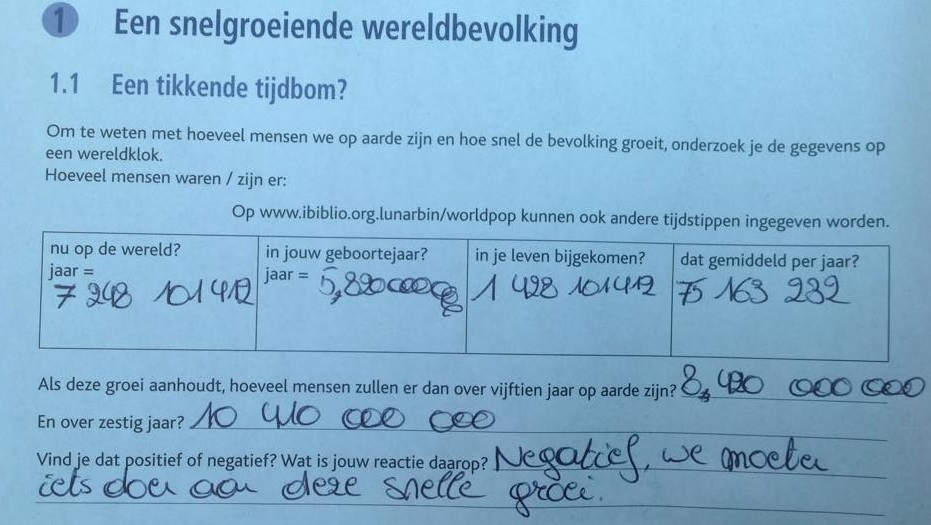 1 Een snelgroeiende wereldbevolking
1.1 Een tikkende tijdbom?
Om te weten met hoeveel mensen we op aarde zijn en hoe snel de bevolking groeit, onderzoek je de gegevens op
een wereldklok.
Hoeveel mensen waren / zijn er:
Op www.ibiblio.org.lunarbin/worldpop kunnen ook andere tijdstippen ingegeven worden.
nu op de wereld?
jaar =
7 248 101 412
in jouw geboortejaar?
jaar =
in je leven bijgekomen?
1 428 101 412
dat gemiddeld per jaar?
75 163 232
Als deze groei aanhoudt, hoeveel mensen zullen er dan over vijftien jaar op aarde zijn? 8, 420 000 000
En over zestig jaar? 10 410 000 000
Vind je dat positief of negatief? Wat is jouw reactie daarop? Negatief, we moeten
iets doen aan deze snelle groei.